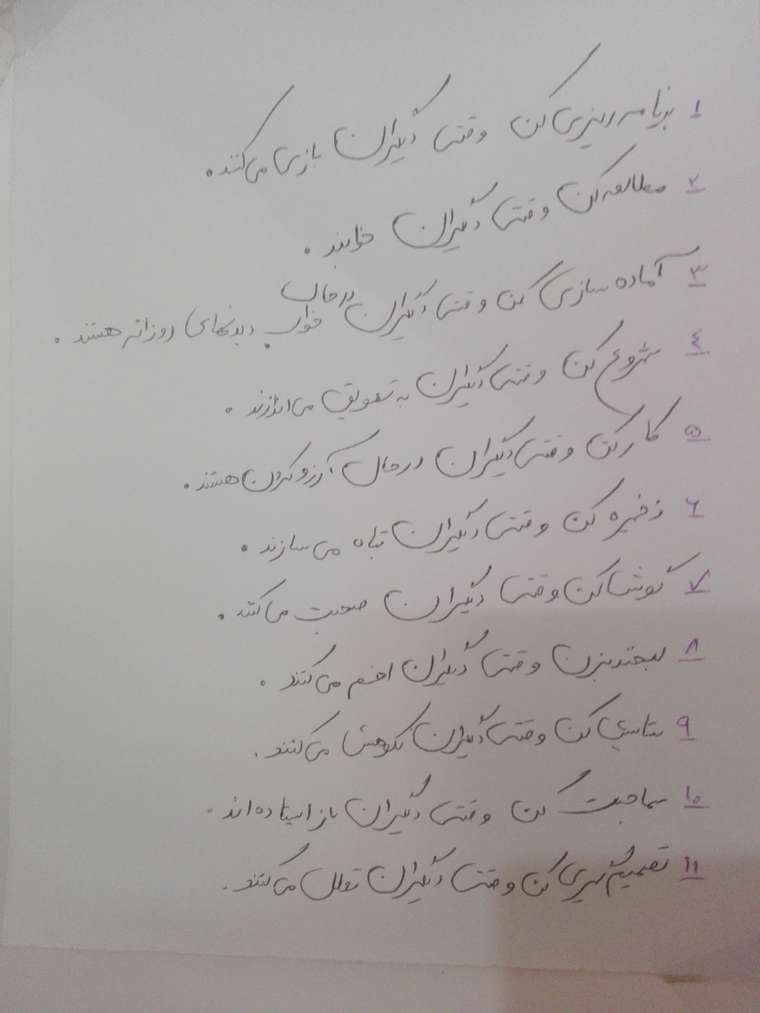 ۱ برنامه ریزی کن وقتی دیگران بازی می کنند.
۲ مطالعه کن وقتی دیگران خوابند.
۳ آماده سازی کن وقتی دیگران درحال خواب دیدنهای روزانه هستند.
٤ شروع کن وقتی دیگران به تعویق می اندازند.
۵ کار کن وقتی دیگران در حال آرزو کردن هستند.
٦ ذخیره کن وقتی دیگران تباه می سازند.
۷ گوش کن وقتی دیگران صحبت می کنند.
۸ لبخند بزن وقتی دیگران اخم می کنند.
۹ ستایش کن وقتی دیگران نکوهش می کنند.
۱۰ سماجت کن وقتی دیگران باز ایستاده اند.
۱۱ تصمیم گیری کن وقتی دیگران تعلل می کنند.